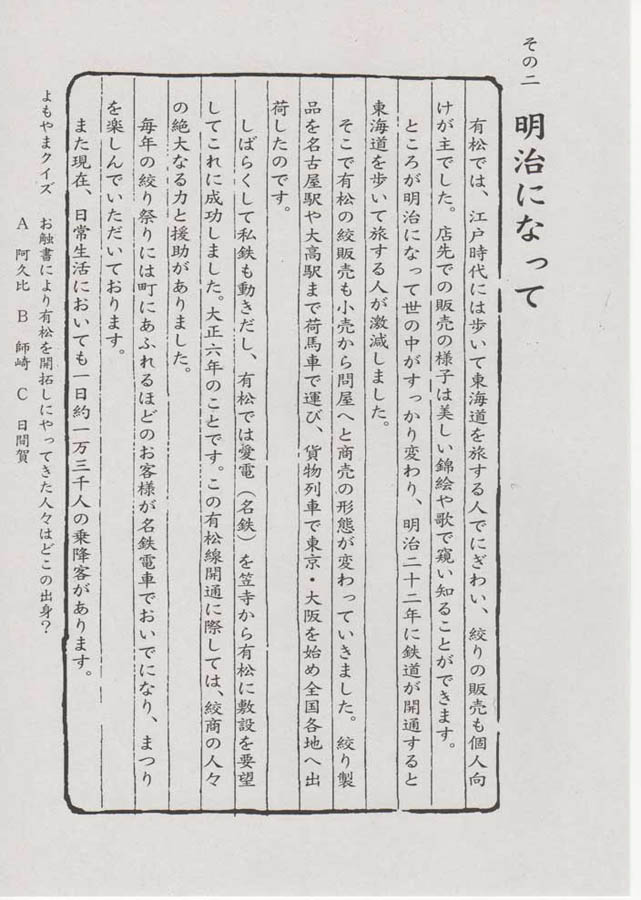 その二　明治になって
有松では、江戸時代には歩いて東海道を旅する人でにぎわい、絞りの販売も個人向
けが主でした。店先での販売の様子は美しい錦絵や歌で窺い知ることができます。
ところが明治になって世の中がすっかり変わり、明治二十二年に鉄道が開通すると
東海道を歩いて旅する人が激減しました。
そこで有松の絞販売も小売から問屋へと商売の形態が変わっていきました。絞り製
品を名古屋駅や大高駅まで荷馬車で運び、貨物列車で東京・大阪を始め全国各地へ出
荷したのです。
しばらくして私鉄も動きだし、有松では愛電（名鉄）を笠寺から有松に敷設を要望
してこれに成功しました。大正六年のことです。この有松線開通に際しては、絞商の人々
の絶大なる力と援助がありました。
毎年の絞り祭りには町にあふれるほどのお客様が名鉄電車でおいでになり、まつり
を楽しんでいただいております。
また現在、日常生活においても一日約一万三千人の乗降客があります。
よもやまクイズ　お触書により有松を開拓しにやってきた人々はどこの出身？
A　阿久比　B　師崎　C　日間賀